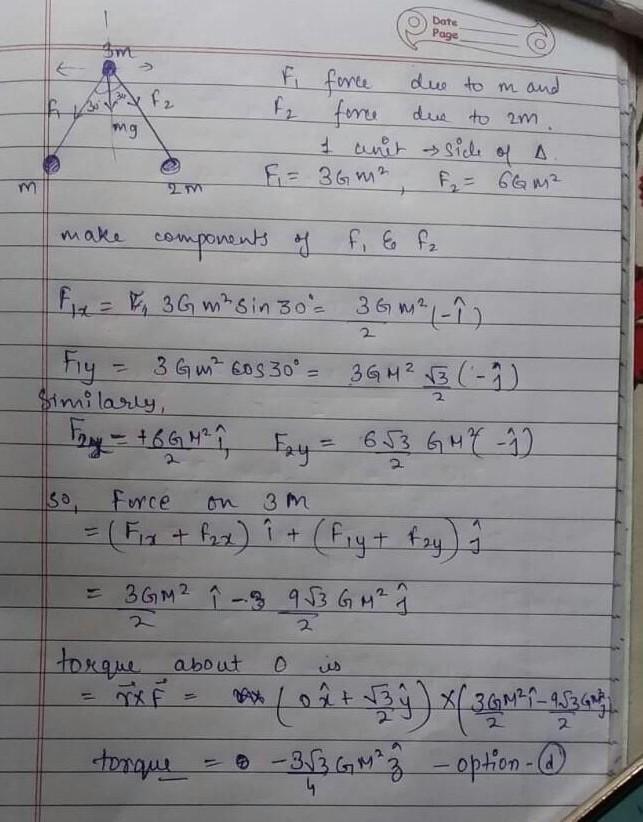 Date
Page
3m
F₁ 30° 30° F₂
mg
m 2m
F₁ force due to m and
F₂ force due to 2m.
1 unit → side of Δ.
F₁ = 3Gm², F₂ = 6Gm²
make components of F₁ & F₂
F₁ₓ = 3Gm² sin 30° = 3Gm²/2 (-î)
F₁y = 3Gm² cos 30° = 3GM² √3/2 (-ĵ)
Similarly,
F₂ₓ = +6GM²/2 î, F₂y = 6√3/2 GM² (-ĵ)
so, Force on 3M
= (F₁ₓ + F₂ₓ) î + (F₁y + F₂y) ĵ
= 3GM²/2 î - 9√3/2 GM² ĵ
torque about O is
= r⃗ × F⃗ = (0x̂ + √3/2 ŷ) × (3GM²/2 î - 9√3GM²/2 ĵ)
torque = -3√3/4 GM² ẑ - option-(d)